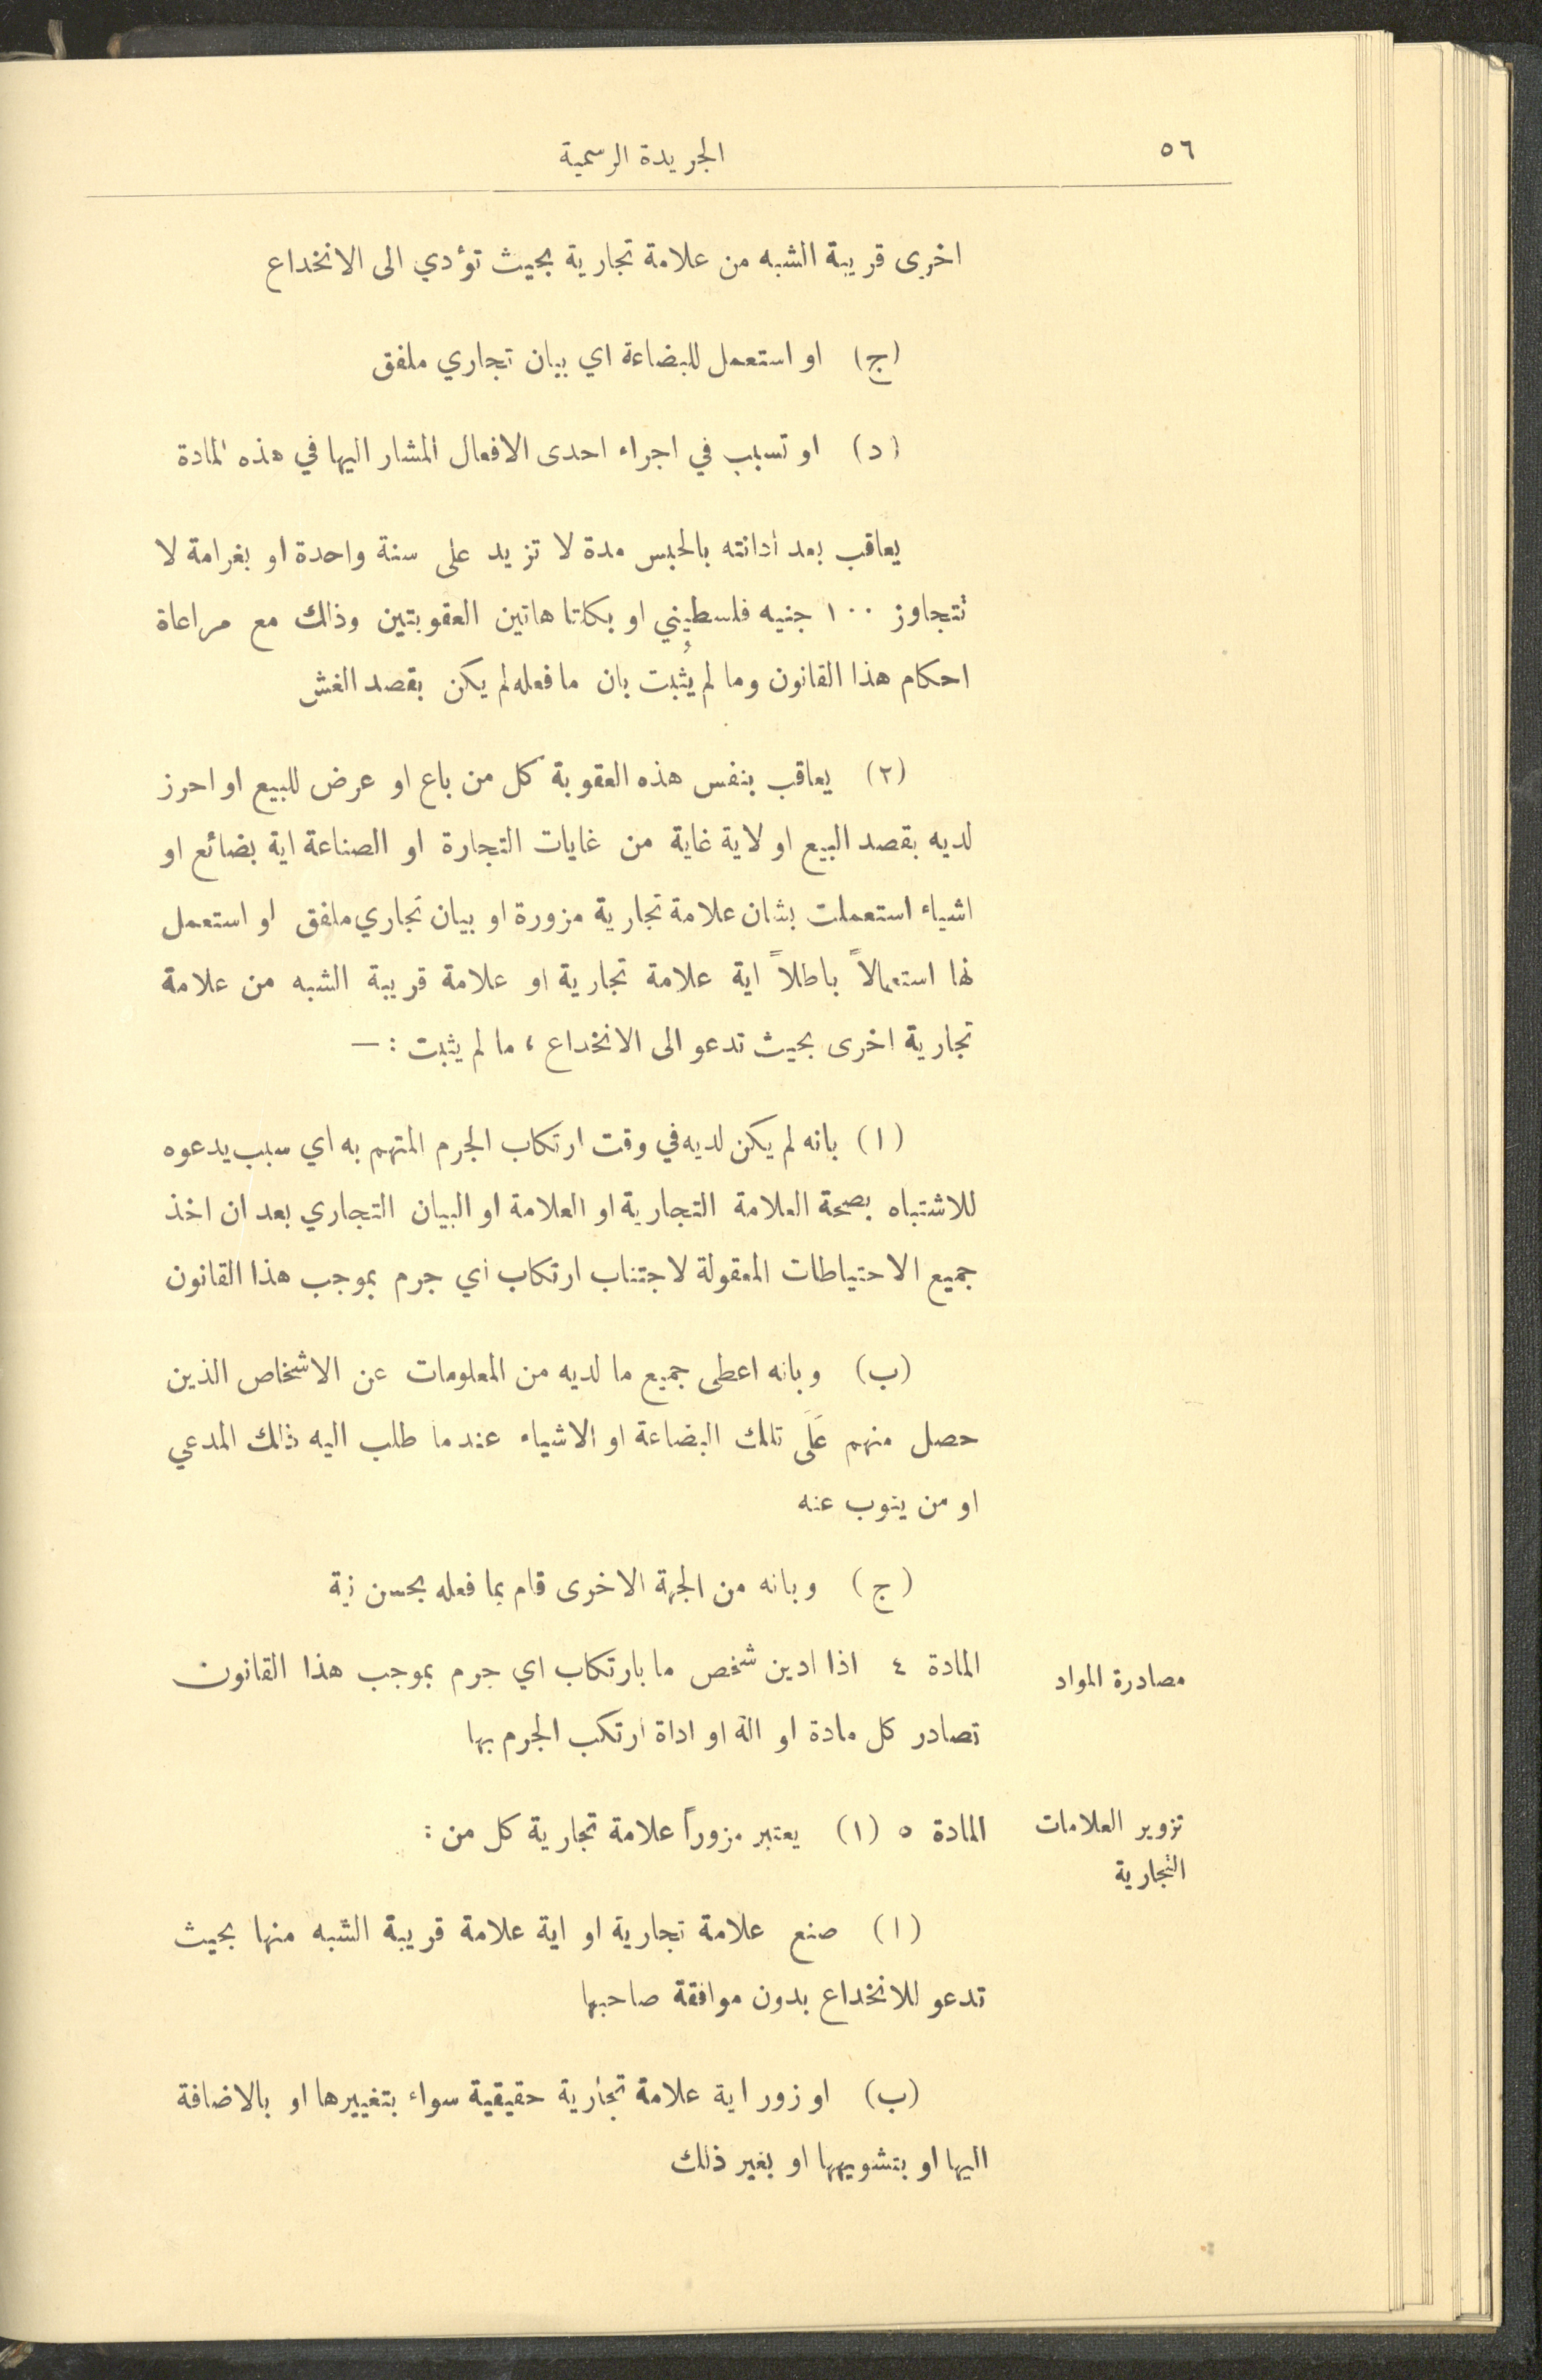 ٥٦
الجريدة الرسمية
اخرى قريبة الشبه من علامة تجارية بحيث تؤدي الى الانخداع
(ج) او استعمل للبضاعة اي بيان تجاري ملفق
(د) او تسبب في اجراء احدى الافعال المشار اليها في هذه المادة
يعاقب بعد ادانته بالحبس مدة لا تزيد على سنة واحدة او بغرامة لا
تتجاوز ١٠٠ جنيه فلسطيني او بكلتا هاتين العقوبتين وذلك مع مراعاة
احكام هذا القانون وما لم يُثبت بان ما فعله لم يكن بقصد الغش
(٢) يعاقب بنفس هذه العقوبة كل من باع او عرض للبيع او احرز
لديه بقصد البيع او لاية غاية من غايات التجارة او الصناعة اية بضائع او
اشياء استعملت بشان علامة تجارية مزورة او بيان تجاري ملفق او استعمل
لها استعمالاً باطلاً اية علامة تجارية او علامة قريبة الشبه من علامة
تجارية اخرى بحيث تدعو الى الانخداع ، ما لم يثبت : —
(ا) بانه لم يكن لديه في وقت ارتكاب الجرم المتهم به اي سبب يدعوه
للاشتباه بصحة العلامة التجارية او العلامة او البيان التجاري بعد ان اخذ
جميع الاحتياطات المعقولة لاجتناب ارتكاب اي جرم بموجب هذا القانون
(ب) وبانه اعطى جميع ما لديه من المعلومات عن الاشخاص الذين
حصل منهم عَلَى تلك البضاعة او الاشياء عندما طلب اليه ذلك المدعي
او من ينوب عنه
(ج) وبانه من الجهة الاخرى قام بما فعله بحسن نية
مصادرة المواد
المادة ٤ اذا ادين شخص ما بارتكاب اي جرم بموجب هذا القانون
تصادر كل مادة او الة او اداة ارتكب الجرم بها
تزوير العلامات
التجارية
المادة ٥ (١) يعتبر مزوراً علامة تجارية كل من :
(ا) صنع علامة تجارية او اية علامة قريبة الشبه منها بحيث
تدعو للانخداع بدون موافقة صاحبها
(ب) او زور اية علامة تجارية حقيقية سواء بتغييرها او بالاضافة
اليها او بتشويهها او بغير ذلك